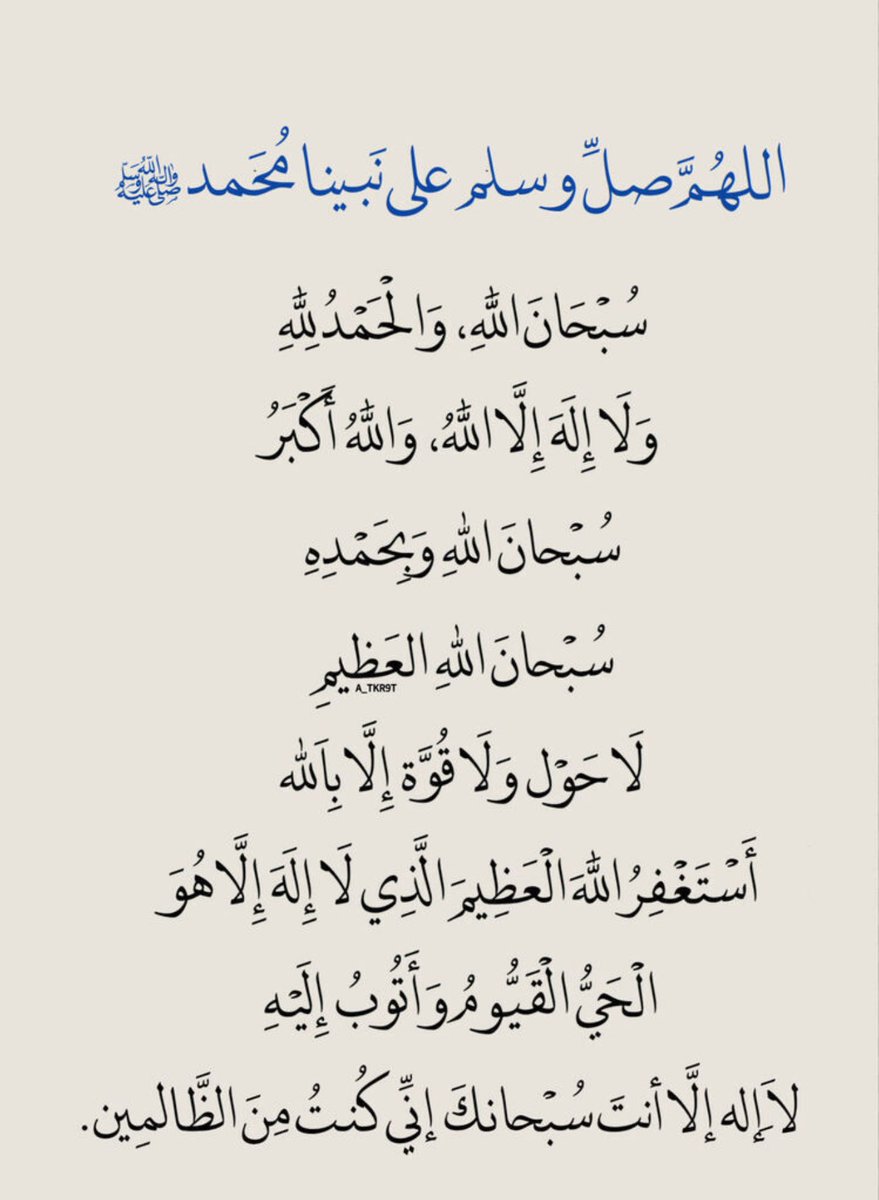 اللهُمَّ صلِّ وسلم على نَبينا مُحَمد ﷺ
سُبْحَانَ اللَّهِ، وَالْحَمْدُ لِلَّهِ
وَلَا إِلَهَ إِلَّا اللَّهُ، وَاللَّهُ أَكْبَرُ
سُبْحانَ اللهِ وَبِحَمْدِهِ
سُبْحانَ اللهِ العَظِيمِ
A_TKR9T
لَا حَوْل وَلَا قُوَّة إِلَّا بِاَللَّه
أَسْتَغْفِرُ اللَّهَ الْعَظِيمَ الَّذِي لَا إِلَهَ إِلَّا هُوَ
الْحَيُّ الْقَيُّومُ وَأَتُوبُ إِلَيْهِ
لاَإِله إلَّا أنتَ سُبْحانكَ إنِّي كُنتُ مِنَ الظَّالمِين.